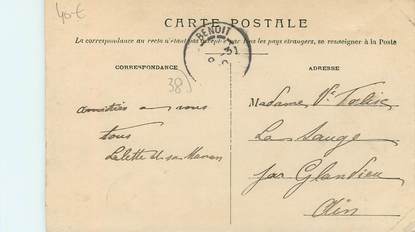 40€
CARTE POSTALE
La correspondance au recto n'étant pas acceptée par tous les pays étrangers, se renseigner à la Poste
BENOIT
CORRESPONDANCE
ADRESSE
38
Madame Ve
amitiés a vous
tous
La Sauge
Lalette et sa Maman
par Glandieu
Ain